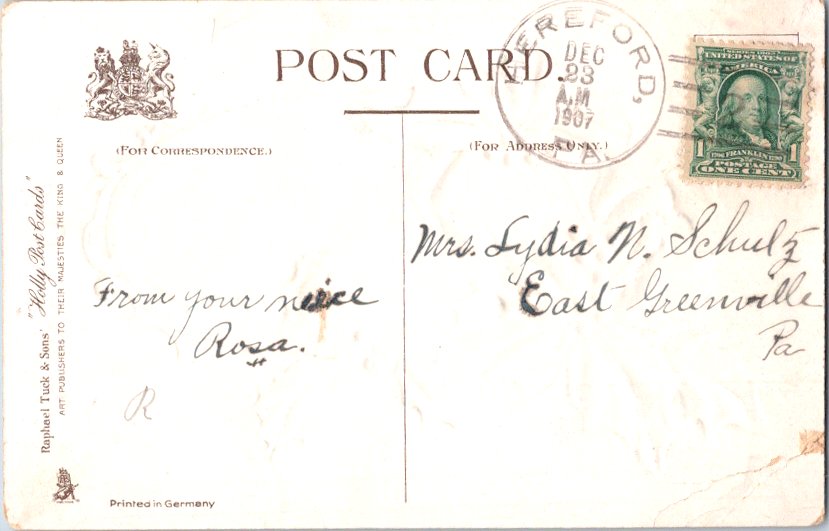 POST CARD.
HEREFORD,
DEC
23
A.M
1907
PA.
SERIES 1902
UNITED STATES OF
AMERICA
1706 FRANKLIN 1790
1 1
POSTAGE
ONE CENT
(FOR CORRESPONDENCE.)
(FOR ADDRESS ONLY.)
Raphael Tuck & Sons' "Holly Post Cards"
ART PUBLISHERS TO THEIR MAJESTIES THE KING & QUEEN
From your neice
Rosa.
R
Mrs. Lydia N. Schultz
East Greenville
Pa
Printed in Germany